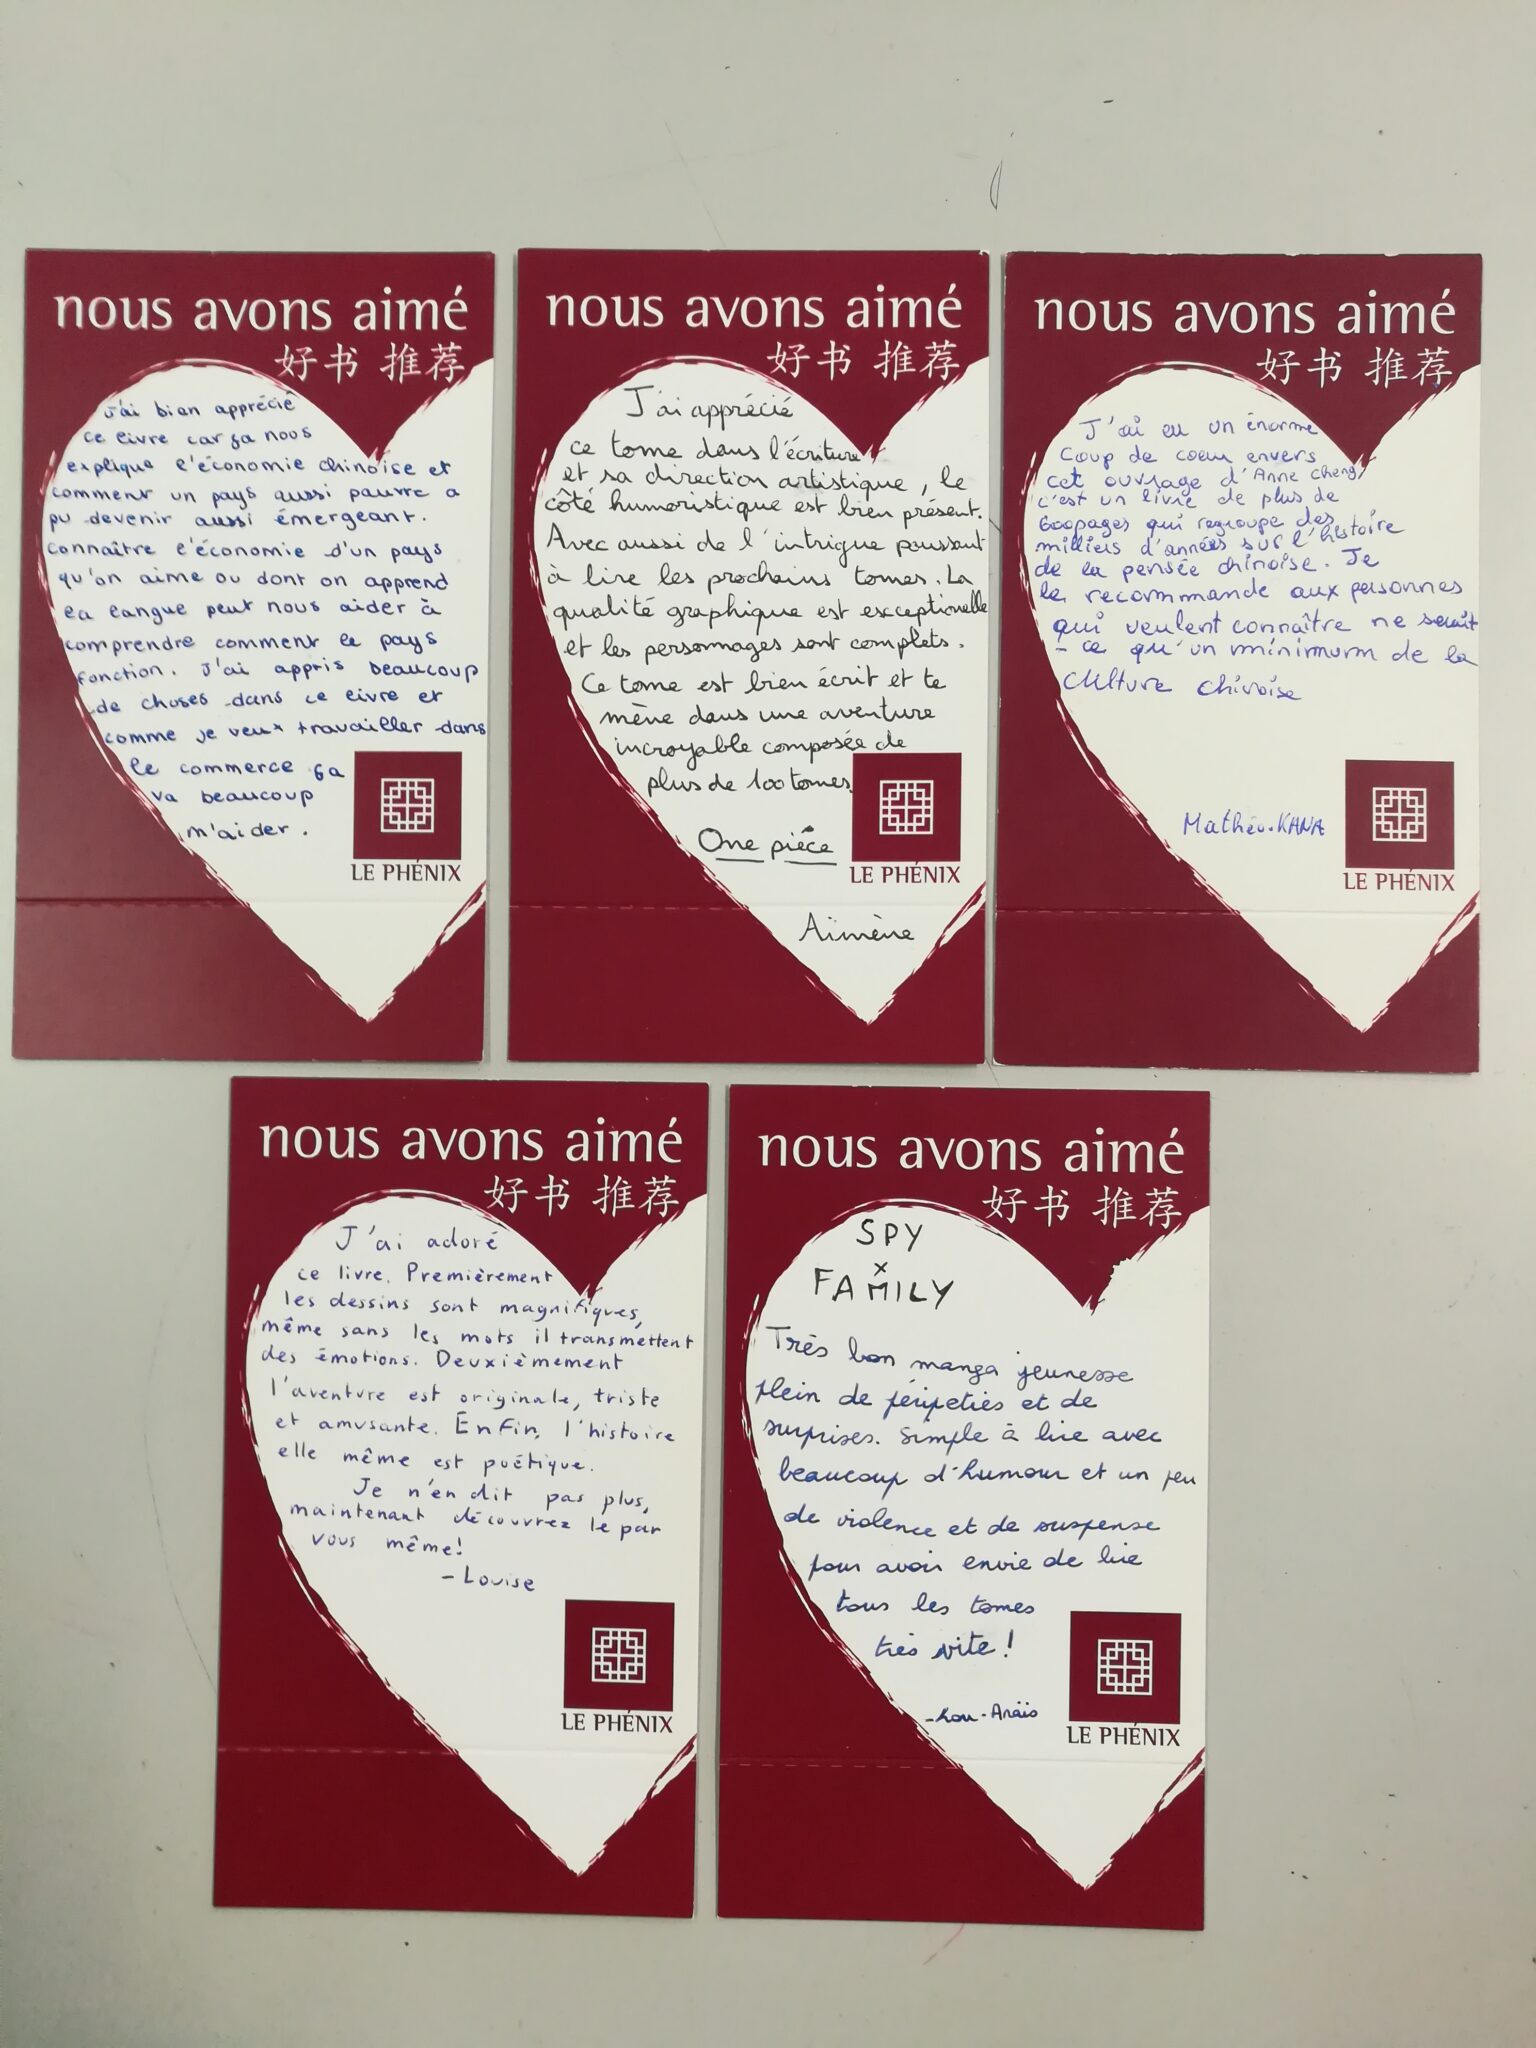 nous avons aimé
好书 推荐
J'ai bien apprécié
ce livre car ça nous
explique l'économie chinoise et
comment un pays aussi pauvre a
pu devenir aussi émergeant.
connaître l'économie d'un pays
qu'on aime ou dont on apprend
la langue peut nous aider à
comprendre comment le pays
fonction. J'ai appris beaucoup
de choses dans ce livre et
comme je veux travailler dans
le commerce ça
va beaucoup
m'aider.
LE PHÉNIX
nous avons aimé
好书 推荐
J'ai apprécié
ce tome dans l'écriture
et sa direction artistique, le
côté humoristique est bien présent.
Avec aussi de l'intrigue poussant
à lire les prochains tomes. La
qualité graphique est exceptionelle
et les personnages sont complets.
Ce tome est bien écrit et te
mène dans une aventure
incroyable composée de
plus de 100 tomes.
One pièce
LE PHÉNIX
Aïmène
nous avons aimé
好书 推荐
J'ai eu un énorme
coup de coeur envers
cet ouvrage d'Anne Cheng,
c'est un livre de plus de
600pages qui regroupe des
milliers d'années sur l'histoire
de la pensée chinoise. Je
le recommande aux personnes
qui veulent connaître ne serait
- ce qu'un minimum de la
culture chinoise
Mathéo.KANA
LE PHÉNIX
nous avons aimé
好书 推荐
J'ai adoré
ce livre. Premièrement
les dessins sont magnifiques,
même sans les mots il transmettent
des émotions. Deuxièmement
l'aventure est originale, triste
et amusante. Enfin, l'histoire
elle même est poétique.
Je n'en dit pas plus,
maintenant découvrez le par
vous même!
- Louise
LE PHÉNIX
nous avons aimé
好书 推荐
SPY
x
FAMILY
Très bon manga jeunesse
plein de péripeties et de
surprises. Simple à lire avec
beaucoup d'humour et un peu
de violence et de suspense
pour avoir envie de lire
tous les tomes
très vite !
- Lou-Anaïs
LE PHÉNIX